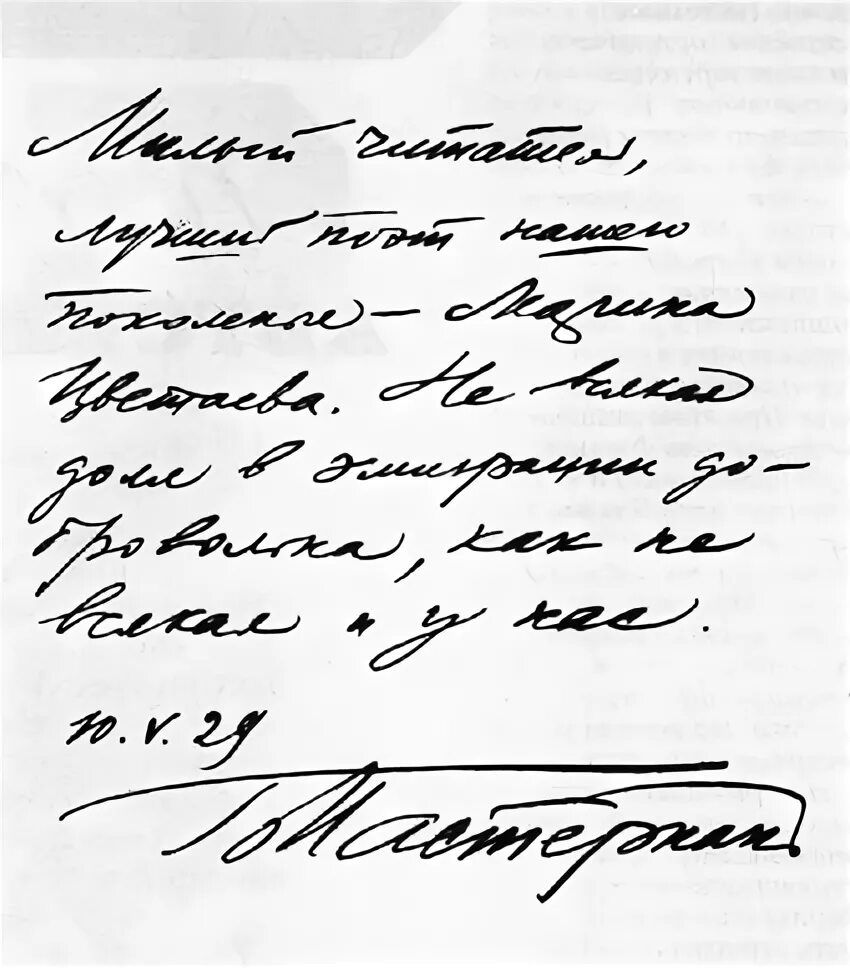 Милый читатель,
лучший поэт нашего
поколенья — Марина
Цветаева. Не всякая
доля в эмиграции до-
бровольна, как не
всякая и у нас.
10. V. 29
Б Пастернак